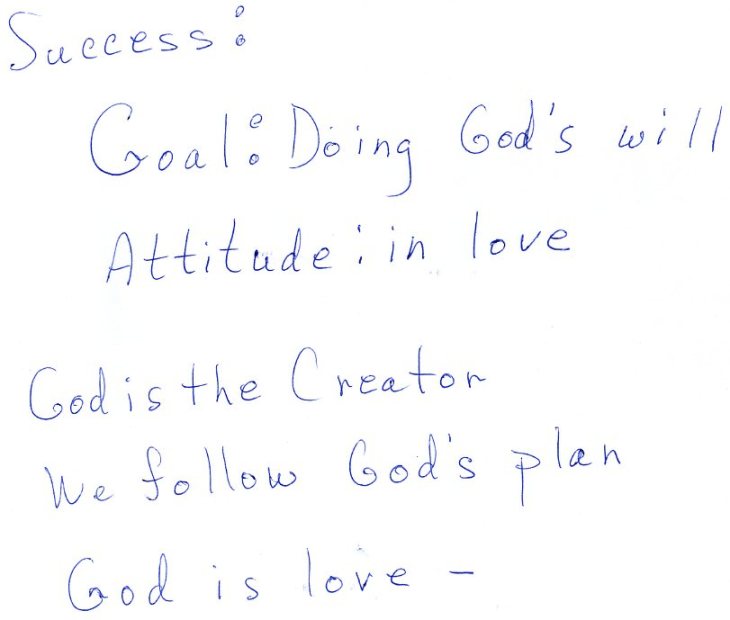 Success:
Goal: Doing God's will
Attitude: in love
God is the Creator
We follow God's plan
God is love -